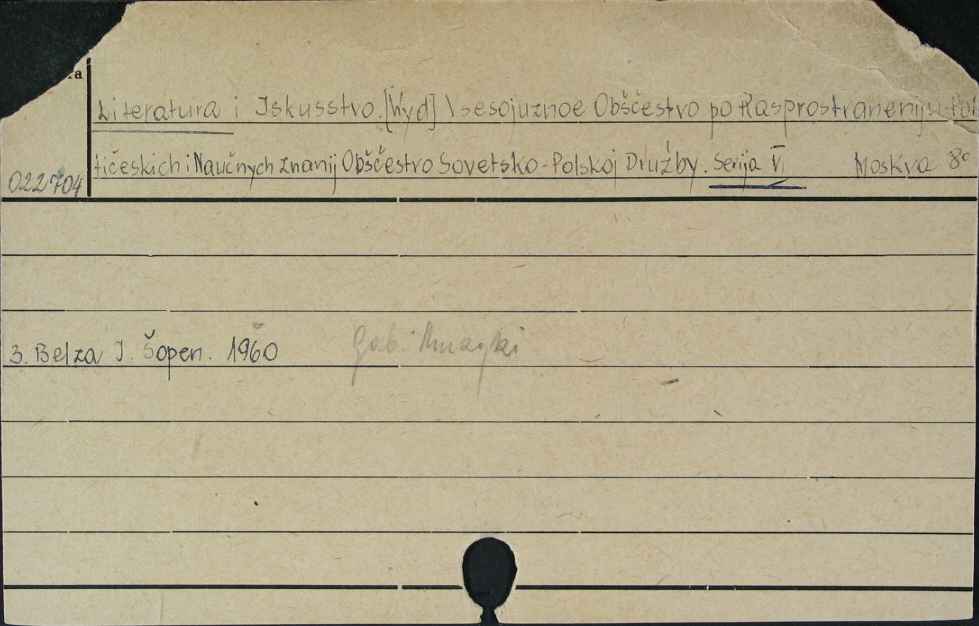 Literatura i Iskusstvo. [Wyd] Vsesojuznoe Obščestvo po Rasprostraneniju Poli
tičeskich i Naučnych Znanij Obščestvo Sovetsko-Polskoj Družby. Serija V, Moskva 8°
022704
3. Belza I. Šopen. 1960 Gab. Muzyki